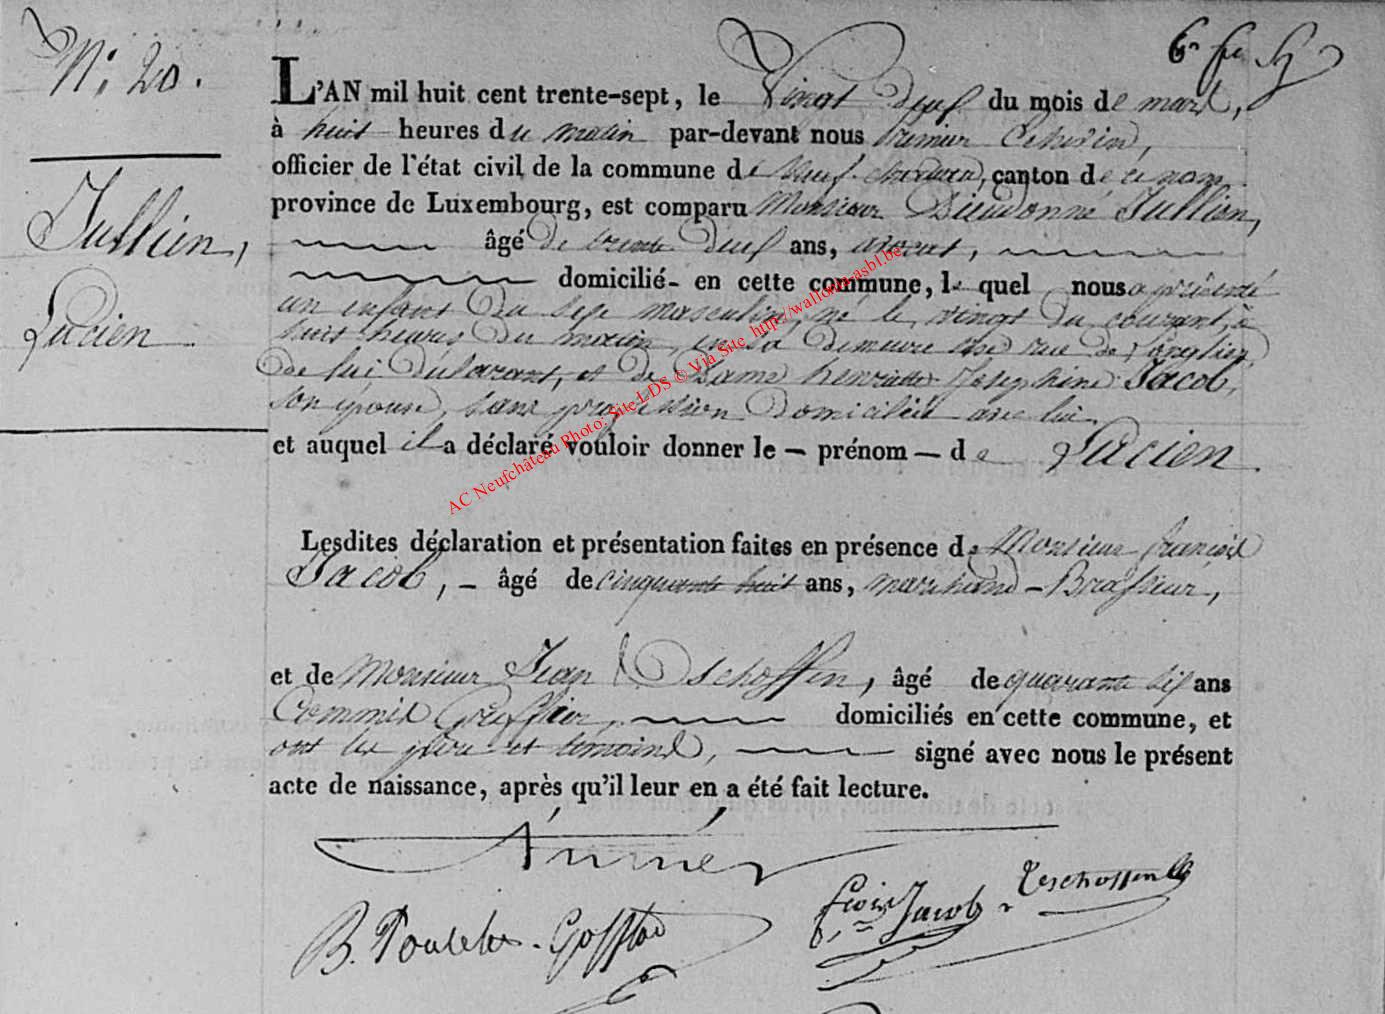 N: 20.
L'AN mil huit cent trente-sept, le Vingt Deux du mois de mars,
à huit heures du matin par-devant nous premier Echevin,
officier de l'état civil de la commune de Neuf-chateau, canton de ce nom
province de Luxembourg, est comparu Monsieur Dieudonné Jullien,
Jullien,
âgé de trente deux ans, avocat,
domicilié- en cette commune, le quel nous a présenté
un enfant du sexe masculin, né le vingt du courant, à
Lucien
huit heures du matin, en sa demeure sise rue de Longlier
de lui déclarant, et de Dame henriette Josephine Jacob,
son épouse, sans profession domiciliée avec lui
et auquel il a déclaré vouloir donner le - prénom - de Lucien
AC Neufchâteau Photo: Site LDS © Via Site http://wallonia-asbl.be
Lesdites déclaration et présentation faites en présence de Monsieur françois
Jacob, - âgé de cinquante huit ans, marchand - Brasseur,
et de Monsieur Jean Deschoffen, âgé de quarante six ans
Commis Greffier, domiciliés en cette commune, et
ont les père et témoins, signé avec nous le présent
acte de naissance, après qu'il leur en a été fait lecture.
frois Jacob